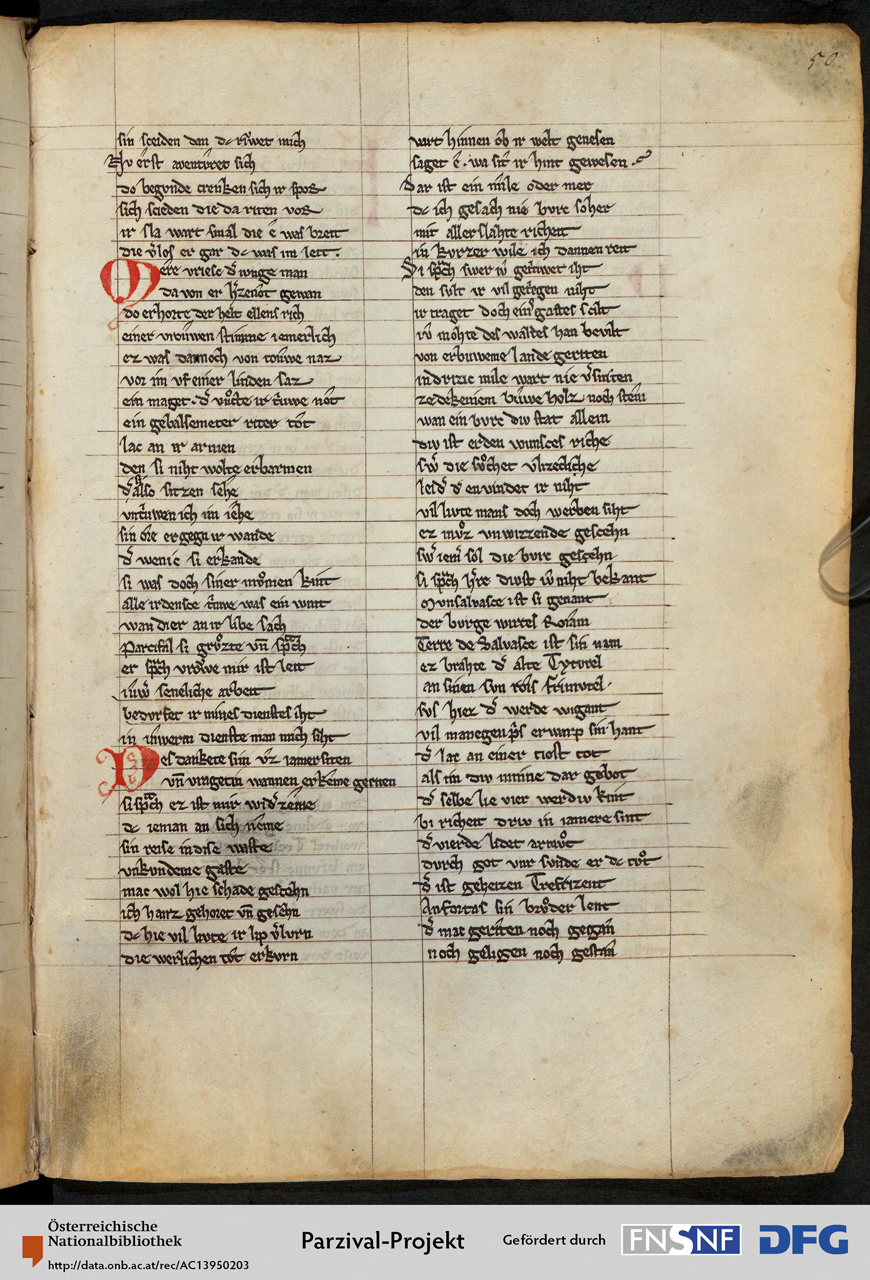 50
sin sceiden dan dc riwet mich
Nv erst aventivret sich
do begvnde crenken sich ir spor
sich scieden die da riten vor
ir sla wart smal die e was breit
die v̓los er gar dc was im leit .
Mere vriesc d̓ ivnge man
da von er h̓zenot gewan
do erhorte der helt ellens rich
einer vrouwen stimme iemerlich
ez was dannoch von touwe naz
vor im vf einer linden saz
ein maget . d̓ vůcte ir triwe not
ein gebalsemeter riter tot
lac an ir armen
den si niht wolte erbarmen
d̓ also sitzen sehe
vntriwen ich im iehe
sin ors ergegn ir wande
d̓ wenic si erkande
si was doch siner můmen kint
alle irdensce triwe was ein wint
wan dier an ir libe sach
Parcifal si grůzte vn̄ sprach
er sprach vrowe mir ist leit
iuw̓ seneliche arbeit
bedvrfet ir mines dienstes iht
in iuwerm dienste man mich siht
Des dankete sim vz iamer siten
vn̄ vragetin wannen er keme geriten
si sprach ez ist mir wid̓zeme
dc ieman an sich neme
sin reise in dise waste
vnkvndeme gaste
mac wol hie schade gescehn
ich hanz gehoret vn̄ gesehn
dc hie vil livte ir lip v̓lurn
die werlichen tot erkvrn
vart hinnen ob ir welt genesen
saget e . wa sit ir hint gewesen .
Dar ist ein mile oder mer
dc ich gesach nie bvrc so her
mit aller slahte richeit
in kvrzer wile ich dannen reit
Si sprach swer iv getriwet iht
den svlt ir vil getriegen niht
ir traget doch eins gastes scilt
iv mohte des waldes han bevilt
von erbuweme lande geriten
in drizic mile wart nie v̓sniten
ze dekeinem buwe holz noch stein
wan ein bvrc div stat allein
div ist erden wunsces riche
sw̓ die sůchet vlizecliche
leid̓ d̓ envindet ir niht
vil livte mans doch werben siht
ez mvz vnwizzende gescehn
sw̓ iem̓ sol die bvrc gesehn
si sprach h̓re divst iv niht bekant
Mvnsalvasce ist si genant
der bvrge wirtes Roiam
Terre de Salvasce ist sin nam
ez brahte d̓ alte Tyturel
an sinen svn rois frimvtel .
svs hiez d̓ werde wigant
vil manegen pris erwarp sin hant
d̓ lac an einer tiost tot
als im div minne dar gebot
d̓ selbe lie vier werdiv kint
bi richeit driv in iamere sint
d̓ vierde lidet armůt
durch got vur svnde er dc tůt
d̓ ist geheizen Trefrizent
Anfortas sin brůder lent
d̓ mac geriten noch gegan
noch geligen noch gestan
Österreichische
Nationalbibliothek
http://data.onb.ac.at/rec/AC13950203
Parzival-Projekt
Gefördert durch
FNSNF
DFG